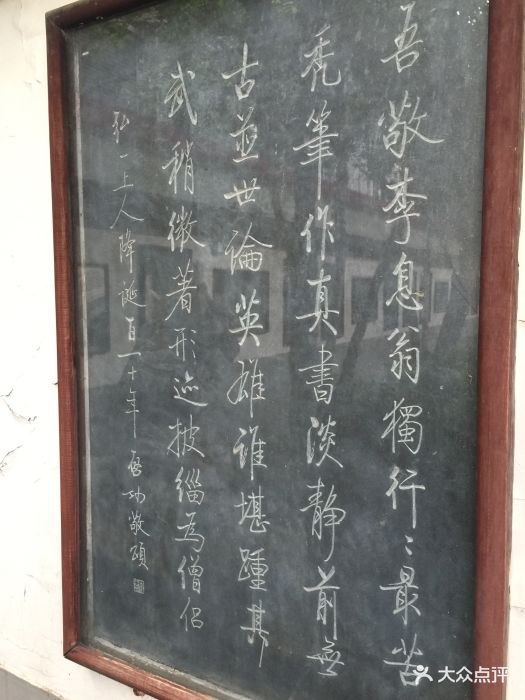 吾敬李息翁獨行〻最苦
禿筆作真書淡靜前無
古並世論英雄誰堪踵其
武稍微著形迹披緇為僧侶
弘一上人降誕百一十年啓功敬頌
大众点评